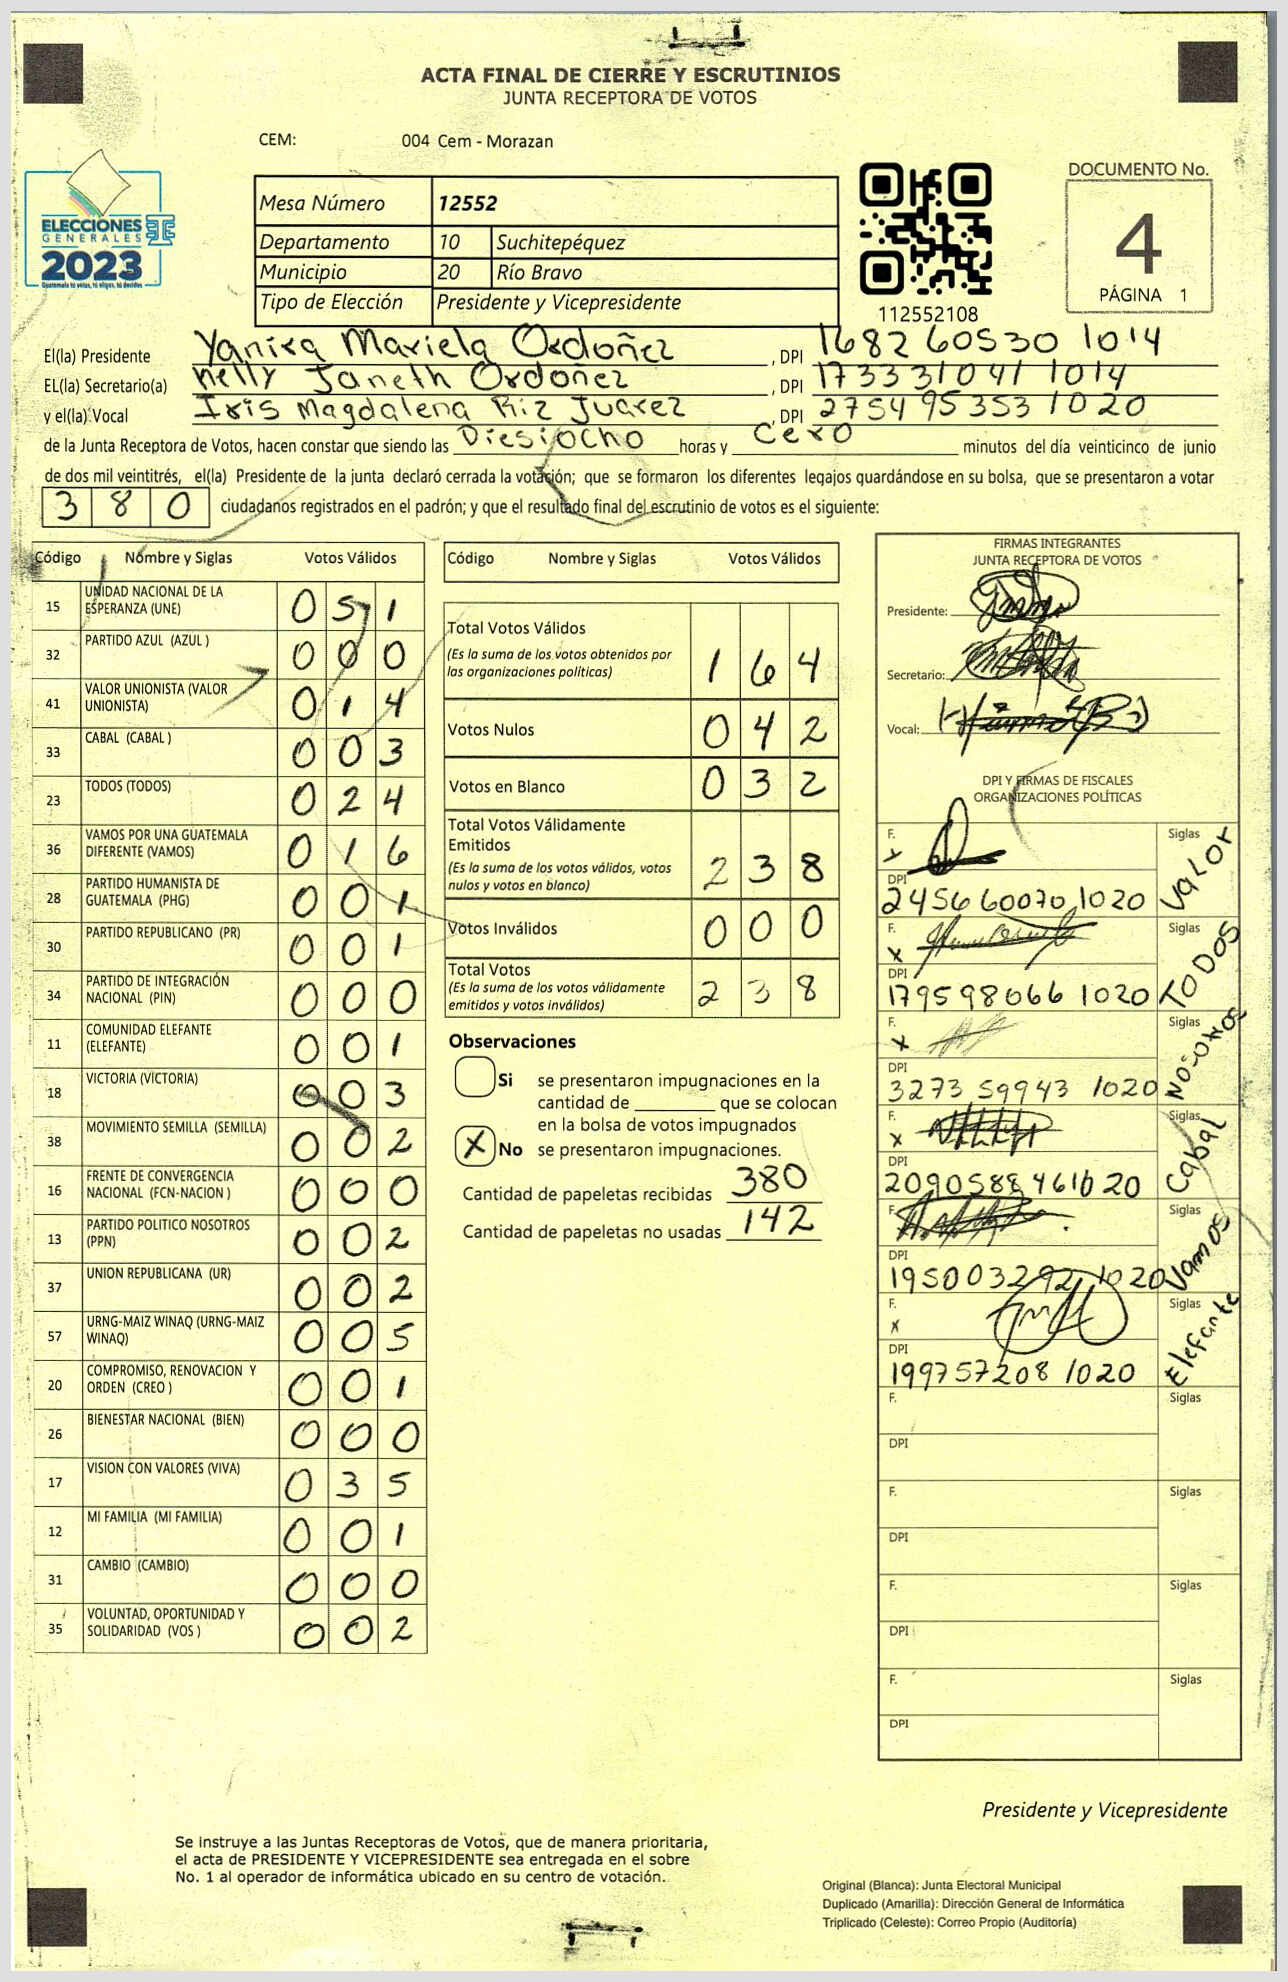 ACTA FINAL DE CIERRE Y ESCRUTINIOS
JUNTA RECEPTORA DE VOTOS
CEM: 004 Cem - Morazan
ELECCIONES
GENERALES
2023
Guatemala tú votas, tú eliges, tú decides
Mesa Número 12552
Departamento 10 Suchitepéquez
Municipio 20 Río Bravo
Tipo de Elección Presidente y Vicepresidente
112552108
DOCUMENTO No.
4
PÁGINA 1
El(la) Presidente Yanira Mariela Ordoñez, DPI 1682 60530 1014
EL(la) Secretario(a) Nelly Janeth Ordoñez, DPI 1733331041 1014
y el(la) Vocal Iris Magdalena Riz Juarez, DPI 2754 95353 1020
de la Junta Receptora de Votos, hacen constar que siendo las Diesiocho horas y Cero minutos del día veinticinco de junio
de dos mil veintitrés, el(la) Presidente de la junta declaró cerrada la votación; que se formaron los diferentes legajos guardándose en su bolsa, que se presentaron a votar
380 ciudadanos registrados en el padrón; y que el resultado final del escrutinio de votos es el siguiente:
Código Nombre y Siglas Votos Válidos
15 UNIDAD NACIONAL DE LA ESPERANZA (UNE) 051
32 PARTIDO AZUL (AZUL ) 000
41 VALOR UNIONISTA (VALOR UNIONISTA) 014
33 CABAL (CABAL ) 003
23 TODOS (TODOS) 024
36 VAMOS POR UNA GUATEMALA DIFERENTE (VAMOS) 016
28 PARTIDO HUMANISTA DE GUATEMALA (PHG) 001
30 PARTIDO REPUBLICANO (PR) 001
34 PARTIDO DE INTEGRACIÓN NACIONAL (PIN) 000
11 COMUNIDAD ELEFANTE (ELEFANTE) 001
18 VICTORIA (VICTORIA) 003
38 MOVIMIENTO SEMILLA (SEMILLA) 002
16 FRENTE DE CONVERGENCIA NACIONAL (FCN-NACION ) 000
13 PARTIDO POLITICO NOSOTROS (PPN) 002
37 UNION REPUBLICANA (UR) 002
57 URNG-MAIZ WINAQ (URNG-MAIZ WINAQ) 005
20 COMPROMISO, RENOVACION Y ORDEN (CREO ) 001
26 BIENESTAR NACIONAL (BIEN) 000
17 VISION CON VALORES (VIVA) 035
12 MI FAMILIA (MI FAMILIA) 001
31 CAMBIO (CAMBIO) 000
35 VOLUNTAD, OPORTUNIDAD Y SOLIDARIDAD (VOS ) 002
Código Nombre y Siglas Votos Válidos
Total Votos Válidos
(Es la suma de los votos obtenidos por
las organizaciones políticas) 164
Votos Nulos 042
Votos en Blanco 032
Total Votos Válidamente
Emitidos
(Es la suma de los votos válidos, votos
nulos y votos en blanco) 238
Votos Inválidos 000
Total Votos
(Es la suma de los votos válidamente
emitidos y votos inválidos) 238
Observaciones
Si se presentaron impugnaciones en la
cantidad de ________ que se colocan
en la bolsa de votos impugnados
X No se presentaron impugnaciones.
Cantidad de papeletas recibidas 380
Cantidad de papeletas no usadas 142
FIRMAS INTEGRANTES
JUNTA RECEPTORA DE VOTOS
Presidente:
Secretario:
Vocal:
DPI Y FIRMAS DE FISCALES
ORGANIZACIONES POLÍTICAS
F. Siglas Valor
DPI 2456 60070 1020
F. X Siglas TODOS
DPI 179598066 1020
F. X Siglas Nosotros
DPI 3273 59943 1020
F. X Siglas Cabal
DPI 2090588461020
F. Siglas Vamos
DPI 195003292 1020
F. x Siglas Elefante
DPI 199757208 1020
F. Siglas
DPI
F. Siglas
DPI
F. Siglas
DPI
F. Siglas
DPI
Presidente y Vicepresidente
Se instruye a las Juntas Receptoras de Votos, que de manera prioritaria,
el acta de PRESIDENTE Y VICEPRESIDENTE sea entregada en el sobre
No. 1 al operador de informática ubicado en su centro de votación.
Original (Blanca): Junta Electoral Municipal
Duplicado (Amarilla): Dirección General de Informática
Triplicado (Celeste): Correo Propio (Auditoría)